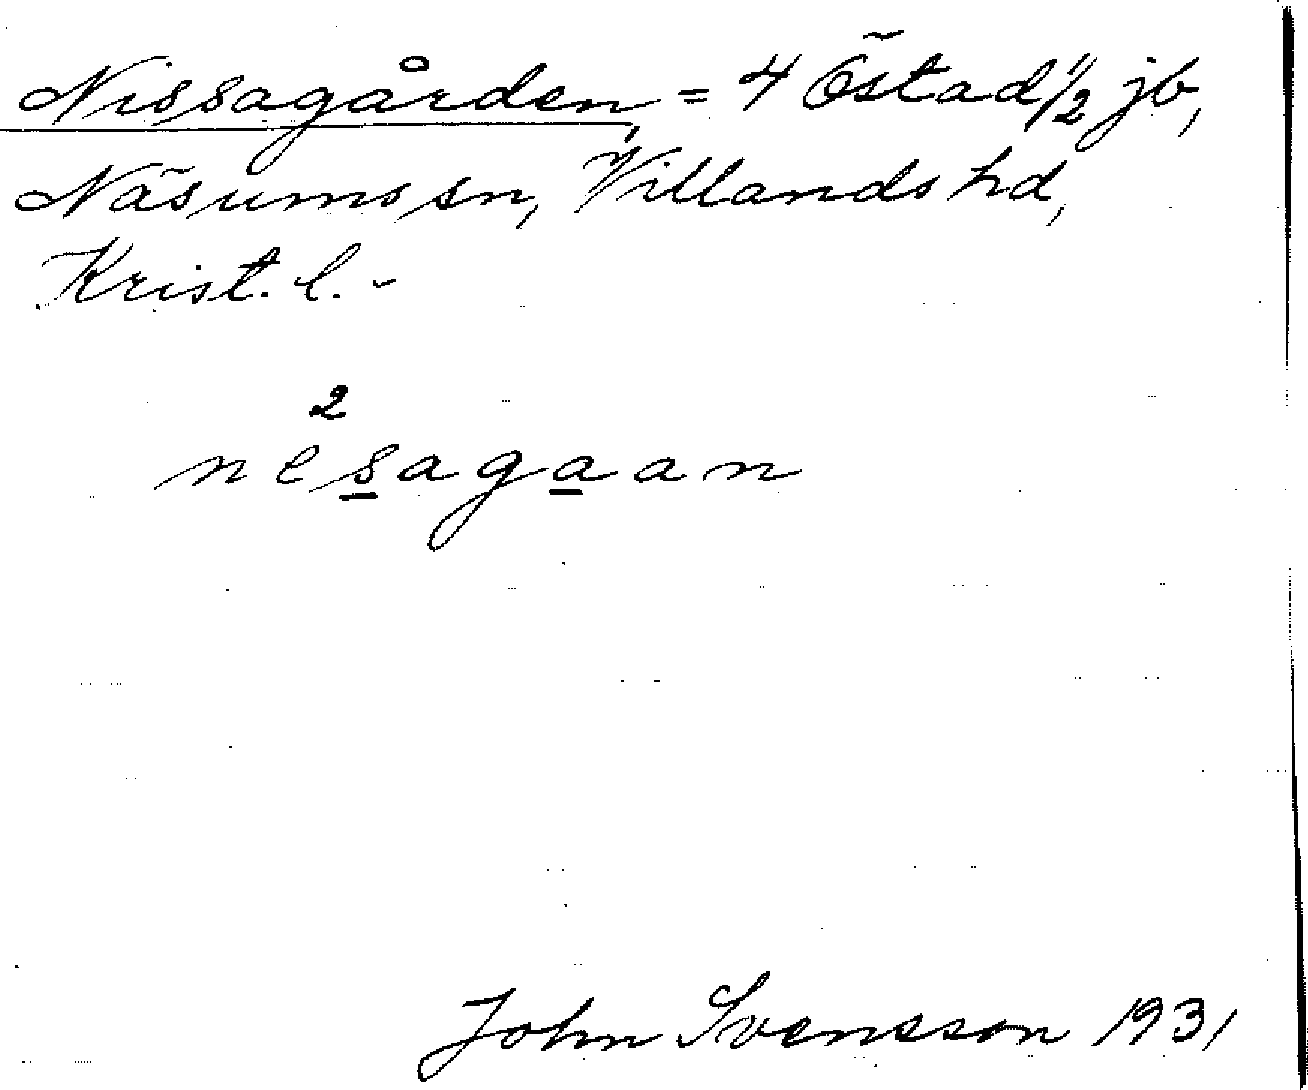 Nissagården, = 4 Östad 1/2 jb,
Näsums sn, Villands hd,
Krist. l. -
2
nesagaan
John Svensson 1931